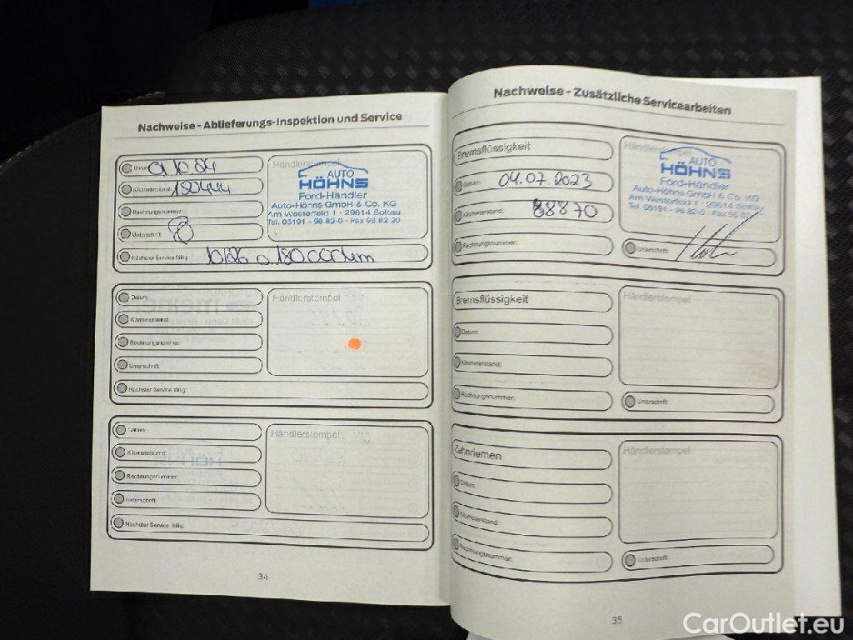 Nachweise - Ablieferungs-Inspektion und Service
Datum:
Kilometerstand: 150444
Rechnungsnummer:
Unterschrift:
Nächster Service fällig: 10/26 a 180000km
Händlerstempel
AUTO
HÖHNS
Ford-Händler
Auto-Höhns GmbH & Co. KG
Am Westerfeld 1 · 29614 Soltau
Tel. 05191 - 98 82-0 - Fax 98 82 20
Datum:
Kilometerstand:
Rechnungsnummer:
Unterschrift:
Nächster Service fällig:
Händlerstempel
Datum:
Kilometerstand:
Rechnungsnummer:
Unterschrift:
Nächster Service fällig:
Händlerstempel
34
Nachweise - Zusätzliche Servicearbeiten
Bremsflüssigkeit
Datum: 04.07.2023
Kilometerstand: 88870
Rechnungsnummer:
Händlerstempel
AUTO
HÖHNS
Ford-Händler
Auto-Höhns GmbH & Co. KG
Am Westerfeld 1 - 29614 Soltau
Tel. 05191 - 98 82-0 - Fax 98 82
Unterschrift:
Bremsflüssigkeit
Datum:
Kilometerstand:
Rechnungsnummer:
Händlerstempel
Unterschrift:
Zahnriemen
Datum:
Kilometerstand:
Rechnungsnummer:
Händlerstempel
Unterschrift:
35
CarOutlet.eu